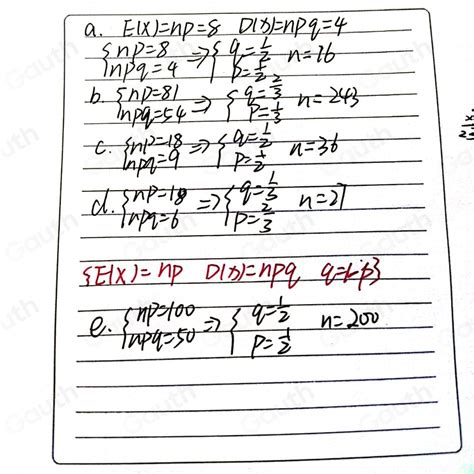 a. E(X)=np=8 D(X)=npq=4
{np=8 npq=4 => {q=1/2 p=1/2 n=16
b. {np=81 npq=54 => {q=2/3 p=1/3 n=243
c. {np=18 npq=9 => {q=1/2 p=1/2 n=36
d. {np=18 npq=6 => {q=1/3 p=2/3 n=27
{E(X)=np D(X)=npq q=1-p}
e. {np=100 npq=50 => {q=1/2 p=1/2 n=200
Gauth